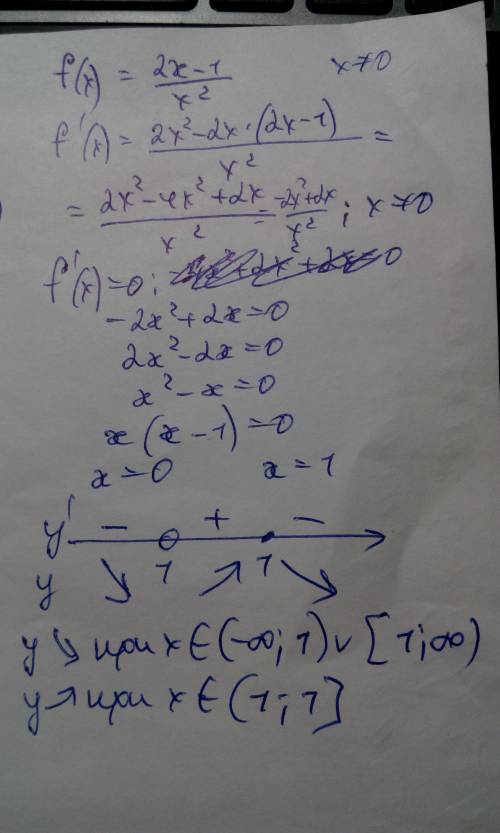 f(x) = (2x-1)/x² x≠0
f'(x) = (2x²-2x·(2x-1))/x² =
= (2x²-4x²+2x)/x² = (-2x²+2x)/x² ; x≠0
f'(x)=0;
-2x²+2x=0
2x²-2x=0
x²-x=0
x(x-1)=0
x=0 x=1
y' - + -
y ↘ 1 ↗ 1 ↘
y ↘ при x∈(-∞;1)∪[1;∞)
y ↗ при x∈(1;1]